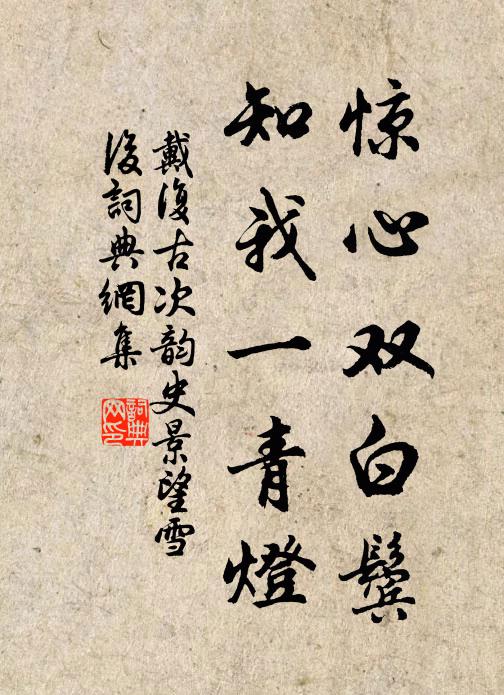 惊心双白鬓
知我一青燈
戴復古次韵史景望雪
後詞典網集
詞典网印